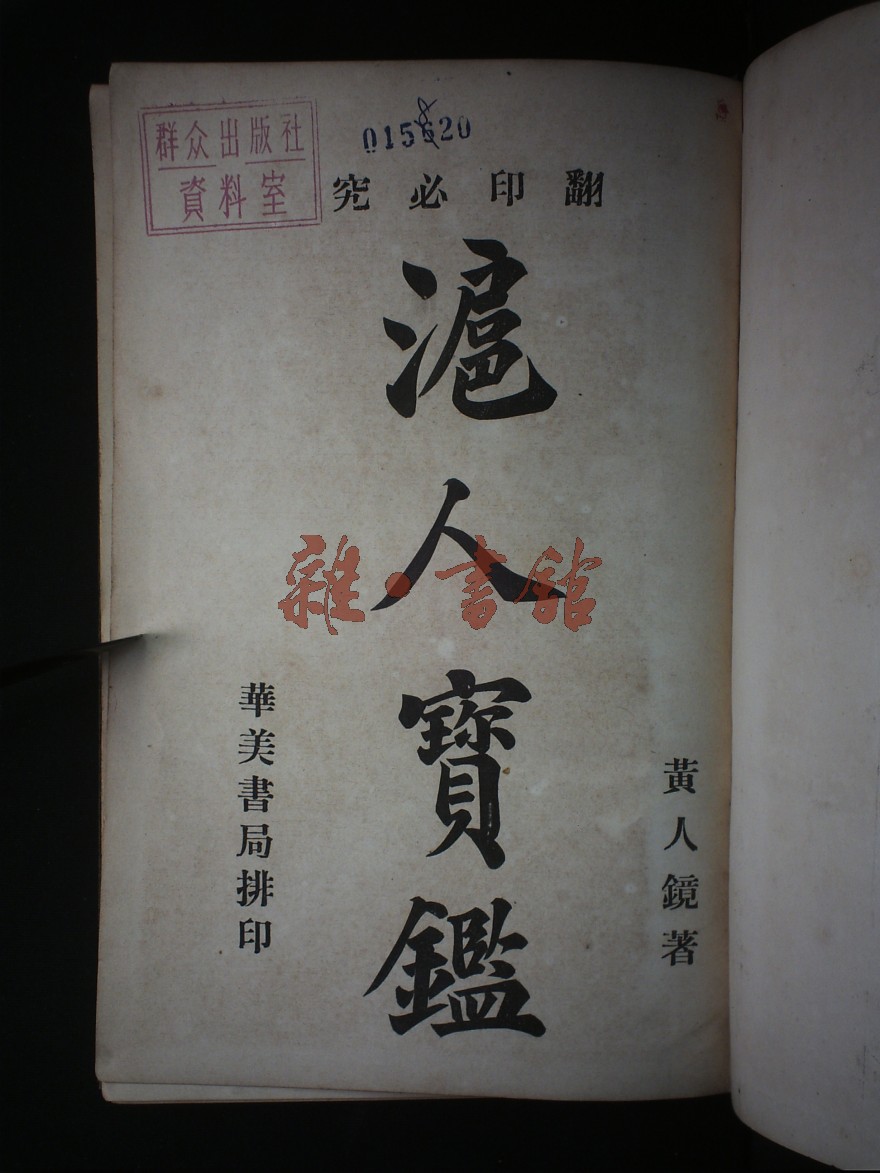 群众出版社
資料室
015820
翻印必究
黃人鏡著
滬人寶鑑
華美書局排印
雜·書館